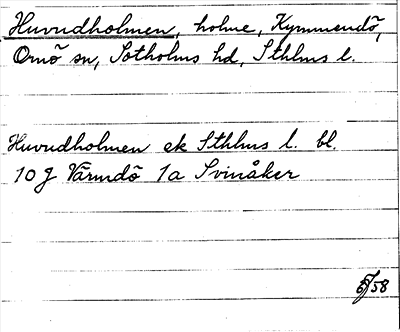 Huvudholmen, holme, Kymmendö,
Ornö sn, Sotholms hd, Sthlms l.
Huvudholmen ek Sthlms l. bl.
10 J Värmdö 1a Svinåker